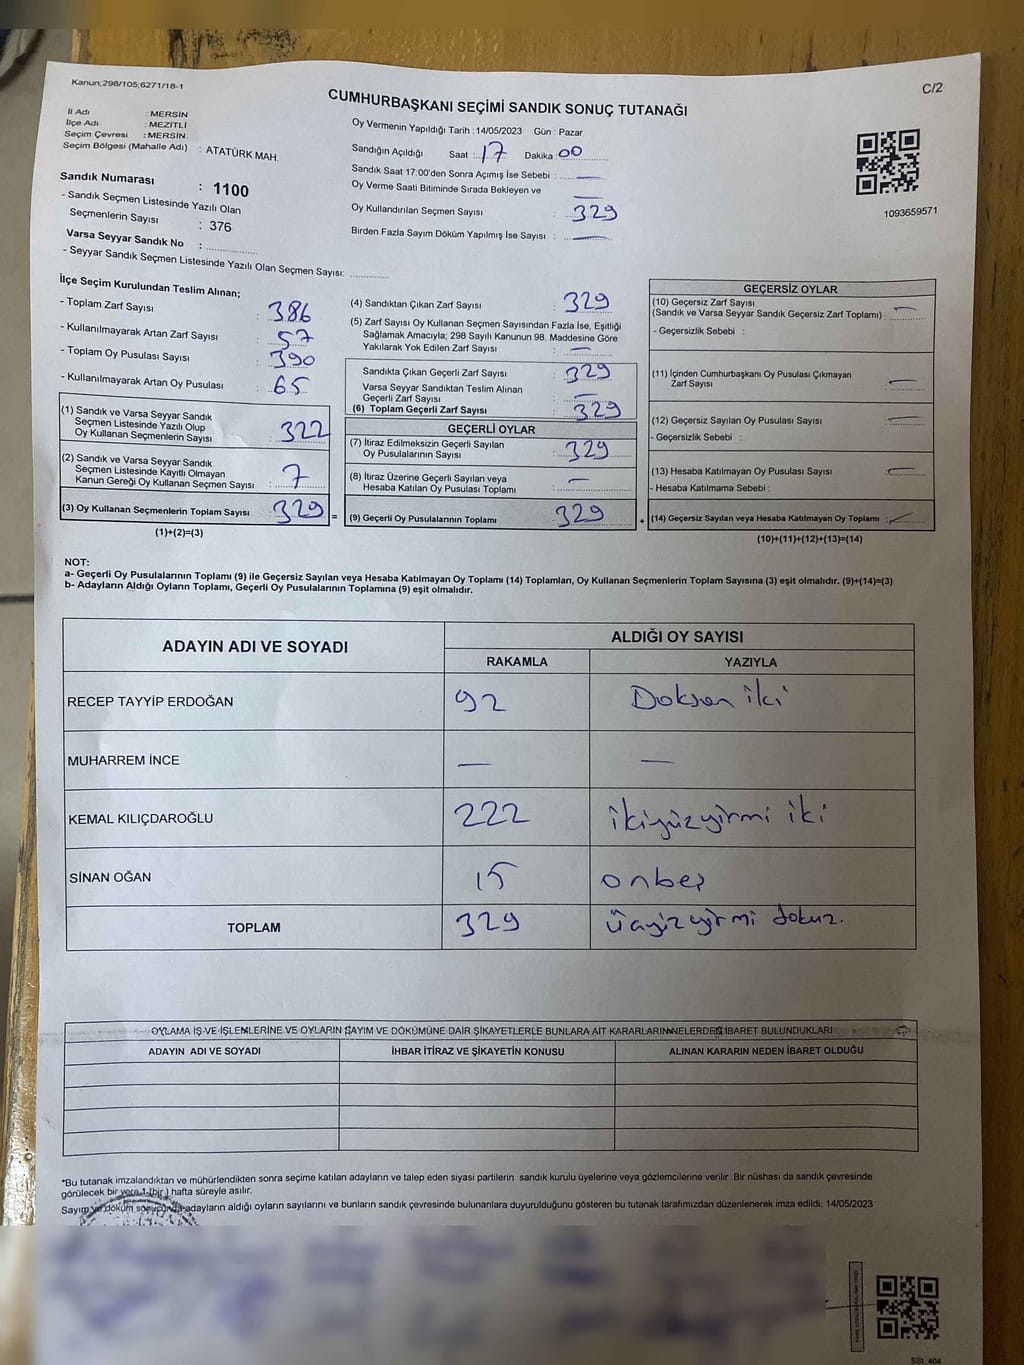 Kanun;298/105;6271/18-1
C/2
CUMHURBAŞKANI SEÇİMİ SANDIK SONUÇ TUTANAĞI
İl Adı : MERSİN
İlçe Adı : MEZİTLİ
Seçim Çevresi : MERSİN
Seçim Bölgesi (Mahalle Adı) : ATATÜRK MAH.
Sandık Numarası : 1100
- Sandık Seçmen Listesinde Yazılı Olan
Seçmenlerin Sayısı : 376
Varsa Seyyar Sandık No :
- Seyyar Sandık Seçmen Listesinde Yazılı Olan Seçmen Sayısı:
Oy Vermenin Yapıldığı Tarih : 14/05/2023 Gün : Pazar
Sandığın Açıldığı Saat : 17 Dakika : 00
Sandık Saat 17:00'den Sonra Açımış İse Sebebi : —
Oy Verme Saati Bitiminde Sırada Bekleyen ve —
Oy Kullandırılan Seçmen Sayısı : 329
Birden Fazla Sayım Döküm Yapılmış İse Sayısı : —
1093659571
İlçe Seçim Kurulundan Teslim Alınan;
- Toplam Zarf Sayısı : 386
- Kullanılmayarak Artan Zarf Sayısı : 57
- Toplam Oy Pusulası Sayısı : 390
- Kullanılmayarak Artan Oy Pusulası : 65
(1) Sandık ve Varsa Seyyar Sandık
Seçmen Listesinde Yazılı Olup
Oy Kullanan Seçmenlerin Sayısı : 322
(2) Sandık ve Varsa Seyyar Sandık
Seçmen Listesinde Kayıtlı Olmayan
Kanun Gereği Oy Kullanan Seçmen Sayısı : 7
(3) Oy Kullanan Seçmenlerin Toplam Sayısı : 329 =
(1)+(2)=(3)
(4) Sandıktan Çıkan Zarf Sayısı : 329
(5) Zarf Sayısı Oy Kullanan Seçmen Sayısından Fazla İse, Eşitliği
Sağlamak Amacıyla; 298 Sayılı Kanunun 98. Maddesine Göre
Yakılarak Yok Edilen Zarf Sayısı : —
Sandıkta Çıkan Geçerli Zarf Sayısı : 329
Varsa Seyyar Sandıktan Teslim Alınan
Geçerli Zarf Sayısı : —
(6) Toplam Geçerli Zarf Sayısı : 329
GEÇERLİ OYLAR
(7) İtiraz Edilmeksizin Geçerli Sayılan
Oy Pusulalarının Sayısı : 329
(8) İtiraz Üzerine Geçerli Sayılan veya
Hesaba Katılan Oy Pusulası Toplamı : —
(9) Geçerli Oy Pusulalarının Toplamı : 329 +
GEÇERSİZ OYLAR
(10) Geçersiz Zarf Sayısı
(Sandık ve Varsa Seyyar Sandık Geçersiz Zarf Toplamı) : —
- Geçersizlik Sebebi :
(11) İçinden Cumhurbaşkanı Oy Pusulası Çıkmayan
Zarf Sayısı : —
(12) Geçersiz Sayılan Oy Pusulası Sayısı : —
- Geçersizlik Sebebi :
(13) Hesaba Katılmayan Oy Pusulası Sayısı : —
- Hesaba Katılmama Sebebi :
(14) Geçersiz Sayılan veya Hesaba Katılmayan Oy Toplamı : —
(10)+(11)+(12)+(13)=(14)
NOT:
a- Geçerli Oy Pusulalarının Toplamı (9) ile Geçersiz Sayılan veya Hesaba Katılmayan Oy Toplamı (14) Toplamları, Oy Kullanan Seçmenlerin Toplam Sayısına (3) eşit olmalıdır. (9)+(14)=(3)
b- Adayların Aldığı Oyların Toplamı, Geçerli Oy Pusulalarının Toplamına (9) eşit olmalıdır.
ADAYIN ADI VE SOYADI ALDIĞI OY SAYISI
RAKAMLA YAZIYLA
RECEP TAYYİP ERDOĞAN 92 Doksan iki
MUHARREM İNCE — —
KEMAL KILIÇDAROĞLU 222 ikiyüzyirmi iki
SİNAN OĞAN 15 onbeş
TOPLAM 329 üçyüzyirmi dokuz.
OYLAMA İŞ VE İŞLEMLERİNE VE OYLARIN SAYIM VE DÖKÜMÜNE DAİR ŞİKAYETLERLE BUNLARA AİT KARARLARIN NELERDEN İBARET BULUNDUKLARI
ADAYIN ADI VE SOYADI İHBAR İTİRAZ VE ŞİKAYETİN KONUSU ALINAN KARARIN NEDEN İBARET OLDUĞU
*Bu tutanak imzalandıktan ve mühürlendikten sonra seçime katılan adayların ve talep eden siyasi partilerin sandık kurulu üyelerine veya gözlemcilerine verilir .Bir nüshası da sandık çevresinde
görülecek bir yere 1 (bir ) hafta süreyle asılır.
Sayım ve döküm sonucunda adayların aldığı oyların sayılarını ve bunların sandık çevresinde bulunanlara duyurulduğunu gösteren bu tutanak tarafımızdan düzenlenerek imza edildi. 14/05/2023
SSI_404